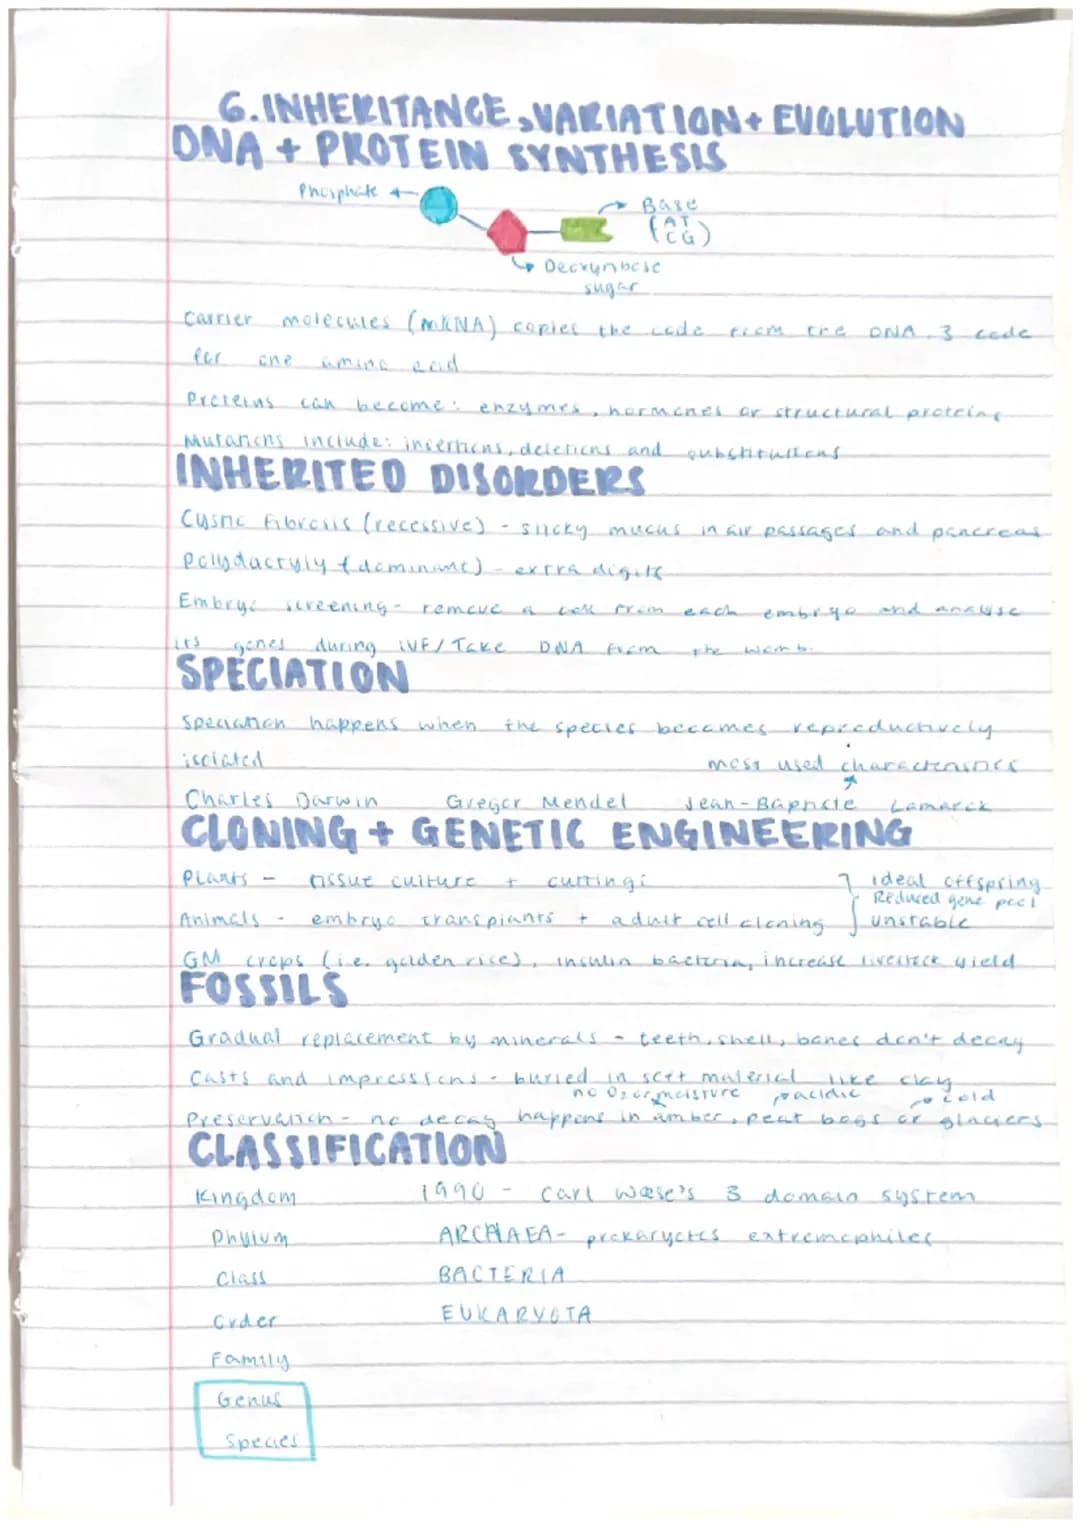 6. INHERITANCE, VARIATION + EVOLUTION
DNA + PROTEIN SYNTHESIS
Phosphate
Base
(AT
CG)
Deoxyribose
sugar
Carrier molecules (mRNA) copies the code from the DNA. 3 code
for one amino acid
Proteins can become: enzymes, hormones or structural proteins
Mutations include: insertions, deletions and substitutions
INHERITED DISORDERS
Cystic fibrosis (recessive) - sticky mucus in air passages and pancreas
Polydactyly (dominant) - extra digits
Embryo screening - remove a cell from each embryo and analyse
its genes during IVF / Take DNA from the womb.
SPECIATION
Speciation happens when the species becomes reproductively
isolated
most used characteristics
Charles Darwin Gregor Mendel Jean-Baptiste Lamarck
CLONING + GENETIC ENGINEERING
Plants - tissue culture + cuttings
ideal offspring
Reduced gene pool
Animals - embryo transplants + adult cell cloning
unstable
GM crops (i.e. golden rice), insulin bacteria, increase livestock yield
FOSSILS
Gradual replacement by minerals - teeth, shell, bones don't decay
Casts and impressions - buried in soft material like clay
no O2 or moisture acidic cold
Preservation - no decay happens in amber, peat bogs or glaciers
CLASSIFICATION
Kingdom 1990 - Carl Woese's 3 domain system
Phylum ARCHAEA - prokaryotes extremophiles
Class BACTERIA
Order EUKARYOTA
Family
Genus
Species